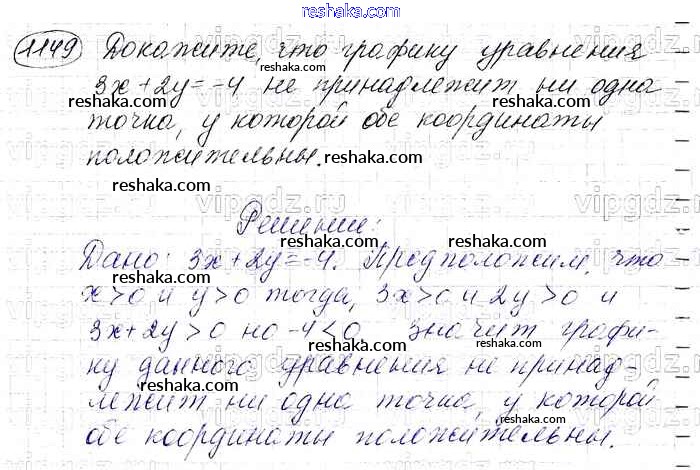 reshaka.com
1149 Докажите, что графику уравнения
reshaka.com
3x + 2y = -4 не принадлежит ни одна
reshaka.com reshaka.com
точка, у которой обе координаты
положительны.
reshaka.com reshaka.com
reshaka.com reshaka.com
Решение:
reshaka.com
Дано: 3x + 2y = -4. Предположим, что
x > 0 и y > 0 тогда, 3x > 0 и 2y > 0 и
reshaka.com reshaka.com
3x + 2y > 0 но -4 < 0 значит графи-
ку данного уравнения не принад-
reshaka.com reshaka.com
лежит ни одна точка, у которой
reshaka.com reshaka.com
обе координаты положительны.
reshaka.com